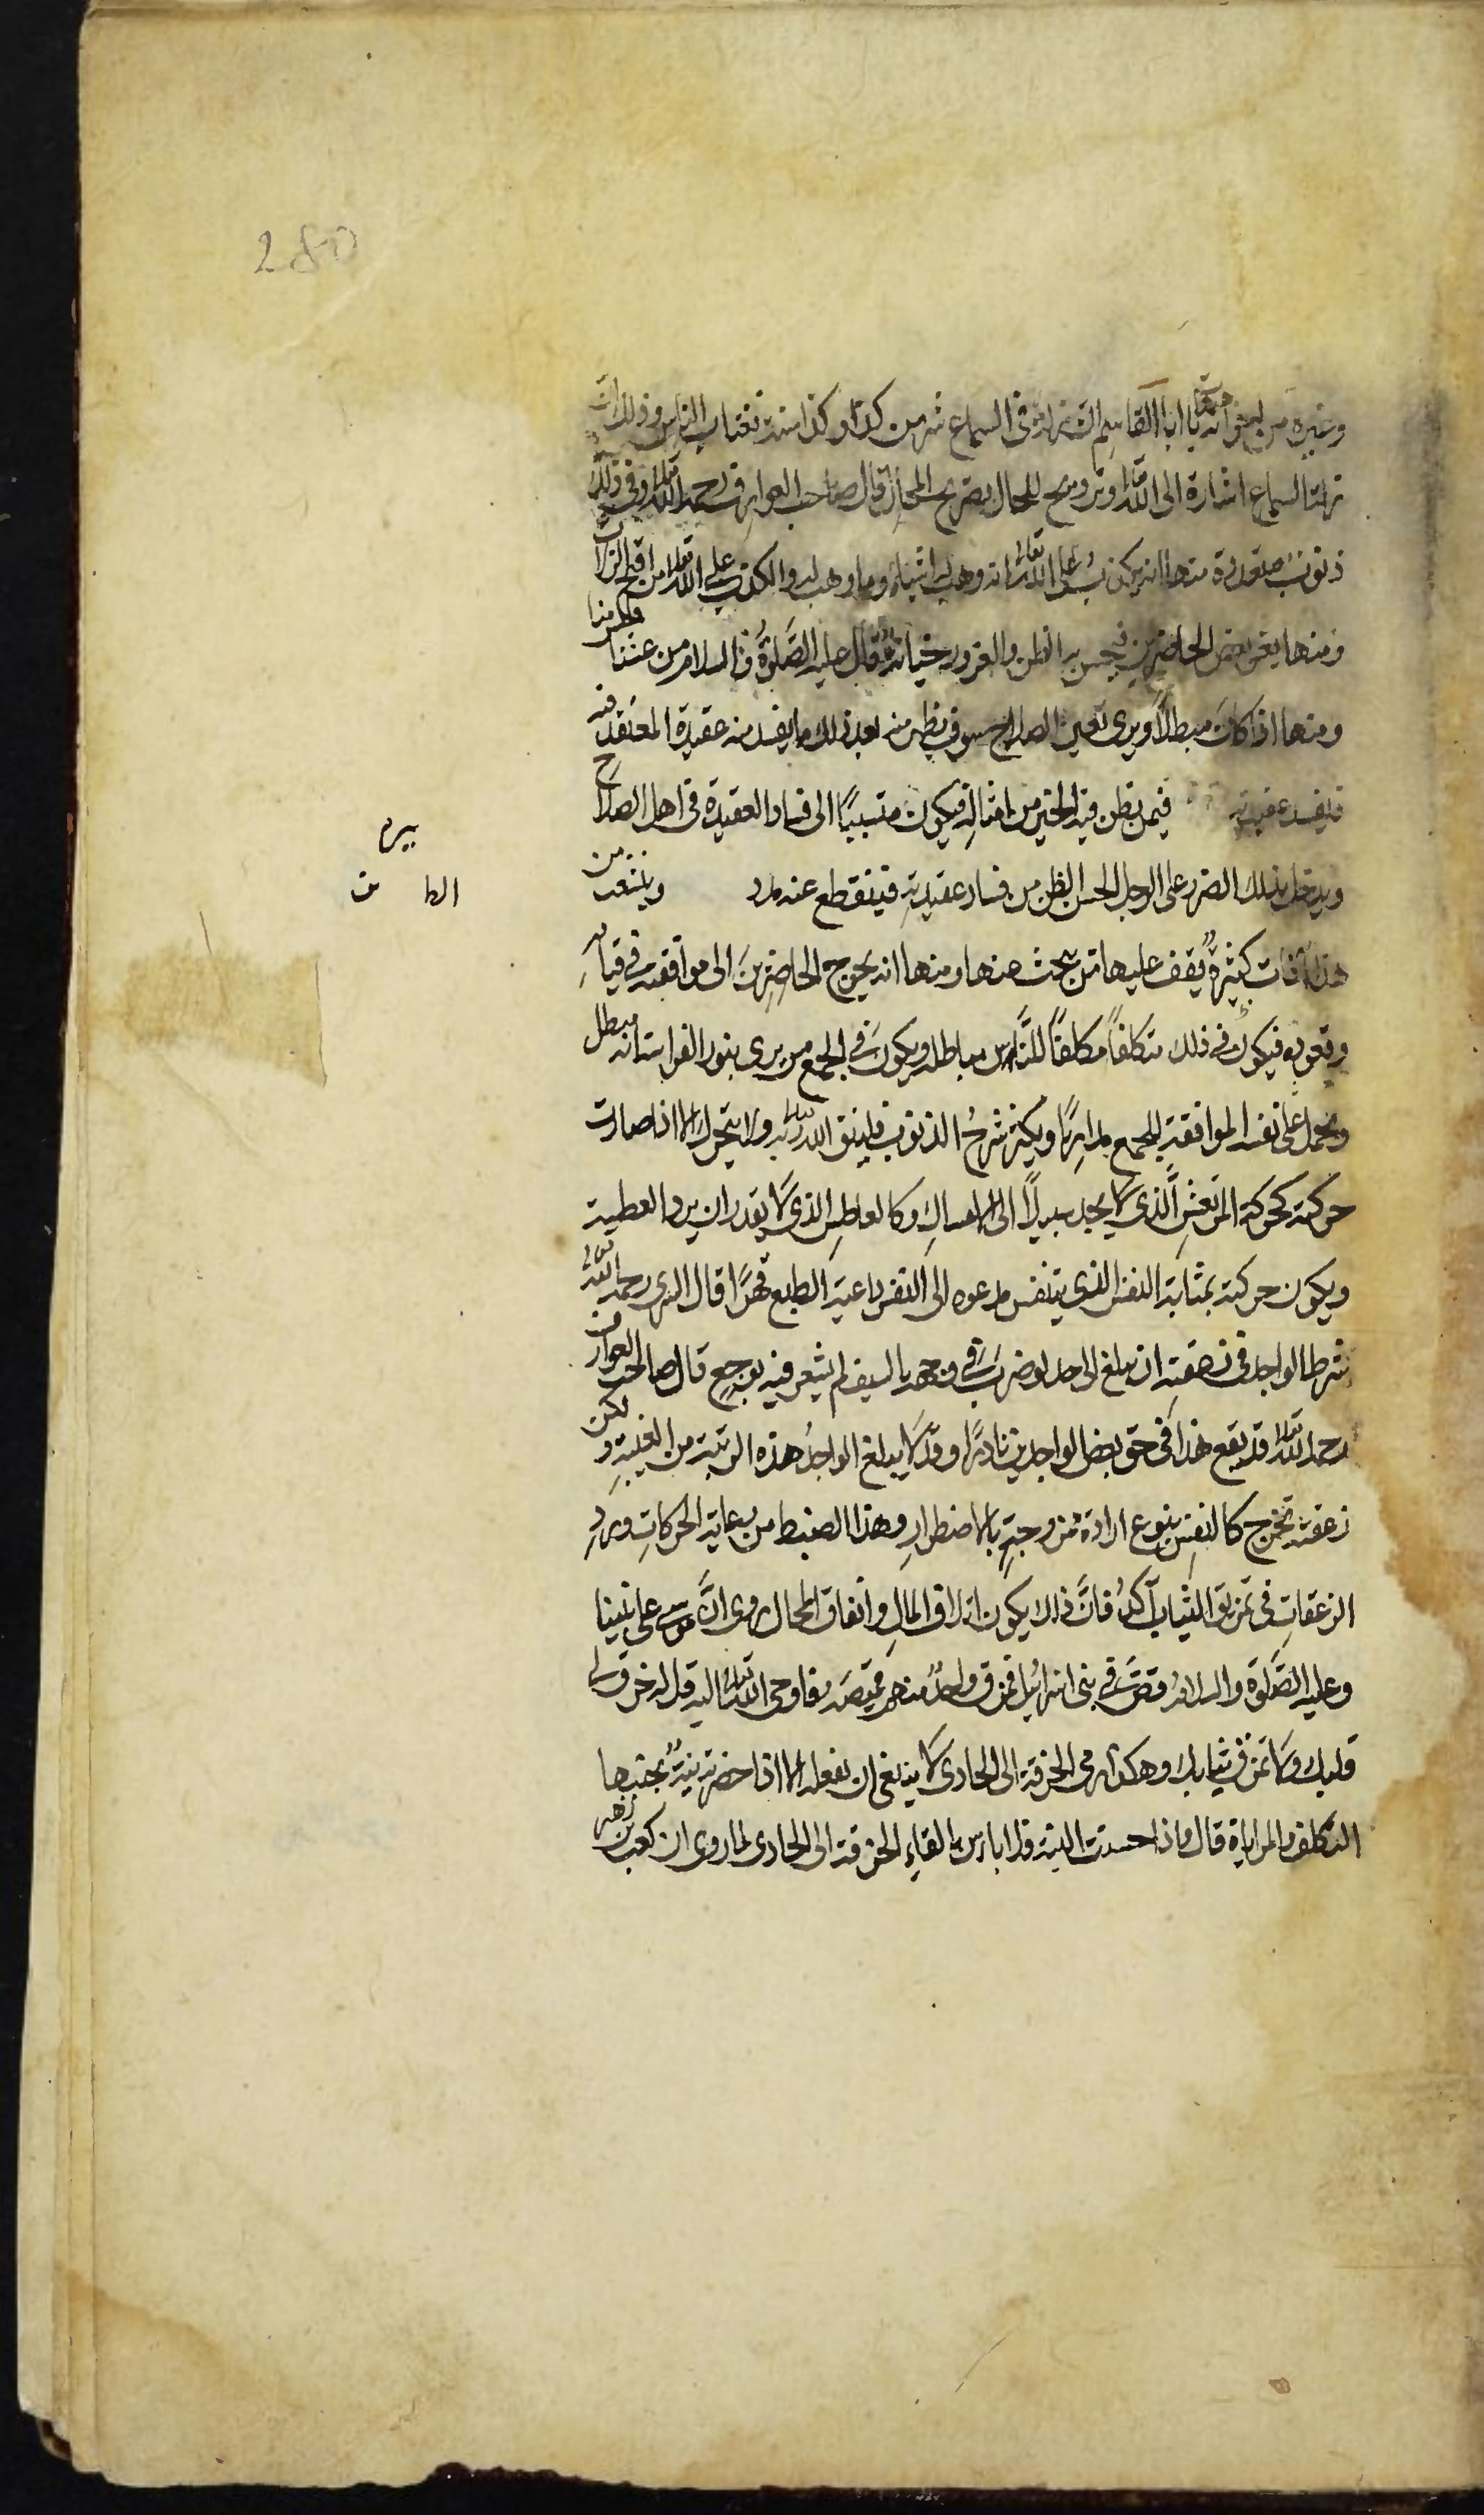 280
وغيره من بعض انه يا ابا القاسم ان زلة فى السماع شر من كذا وكذا سنة نغتاب الناس وذلك ان
زلة السماع اشارة الى الله تعالى وترويح للحال بصريح المحال قال صاحب العوارف رحمه الله تعالى وفى ذلك
ذنوب متعددة منها انه يكذب على الله تعالى انه وهب له شيئا وما وهب له والكذب على الله تعالى من اقبح الزلات
ومنها يغر بعض الحاضرين فيحسن به الظن والغرور خيانة قال عليه الصلوة والسلام من غشنا فليس منا
ومنها اذا كان مبطلا ويرى بعين الصلاح سوف يظهر منه بعد ذلك ما يفسد منه عقيدة المعتقد فيه
فيفسد عقيدته فيمن يظن فيه الخير من امثاله فيكون متسببا الى فساد العقيدة فى اهل الصلاح
ويدخل بذلك الضرر على الرجل الحسن الظن من فساد عقيدته فينقطع عنه مدد ويتشعب من
بيرم
الطا ت
هذا آفات كثيرة يقف عليها من يبحث عنها ومنها انه يحوج الحاضرين الى موافقته فى قيامه
وقعوده فيكون فى ذلك متكلفا مكلفا للناس بباطله ويكون فى الجمع من يرى بنور الفراسة انه مبطل
ويحمل على نفسه الموافقة للجمع مداريا ويكثر شرح الذنوب فليتق الله ربه ولا يتحرك الا اذا صارت
حركته كحركة المرتعش الذى لا يجد سبيلا الى الامساك وكالعاطس الذى لا يقدر ان يرد العطسة
ويكون حركته بمثابة النفس الذى يتنفس مدعوه الى التنفس داعية الطبع قهرا قال السرى رحمه الله تعالى
شرط الواجد فى زعقته ان يبلغ الى حد لو ضرب فى وجهه بالسيف لم يشعر فيه بوجع قال صاحب العوارف
رحمه الله تعالى قد يقع هذا فى حق بعض الواجدين نادرا وقد لا يبلغ الواجد هذه الرتبة من الغيبة ولكن
زعقته تخرج كالنفس بنوع ارادة ممزوجة بالاضطرار وهذا الضبط من رعاية الحركات ورد
الزعقات فى تمزيق الثياب آكد فان ذلك يكون اتلاف المال وانفاق المحال روى ان موسى على نبينا
وعليه الصلوة والسلام قص فى بنى اسرائيل فمزق واحد منهم قميصه فاوحى الله تعالى اليه قل له خرق لى
قلبك ولا تمزق ثيابك وهكذا رمى الخرقة الى الحادى لا ينبغى ان يفعله الا اذا حضرته نية يجتنب بها
التكلف والمراياة قال واذا حسنت النية فلا باس بالقاء الخرقة الى الحادى لما روى ان كعب بن زهير